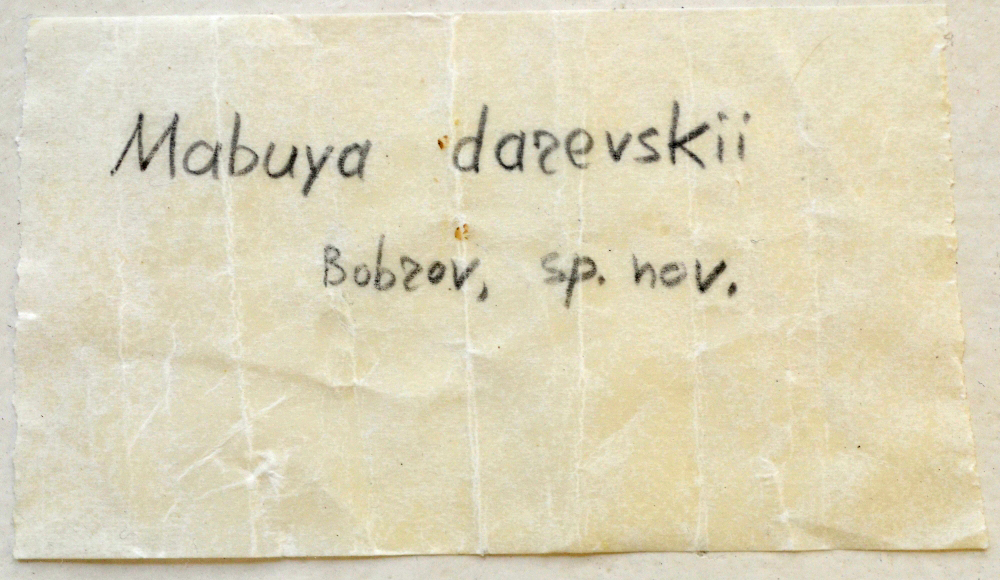 Mabuya darevskii
Bobrov, sp. nov.